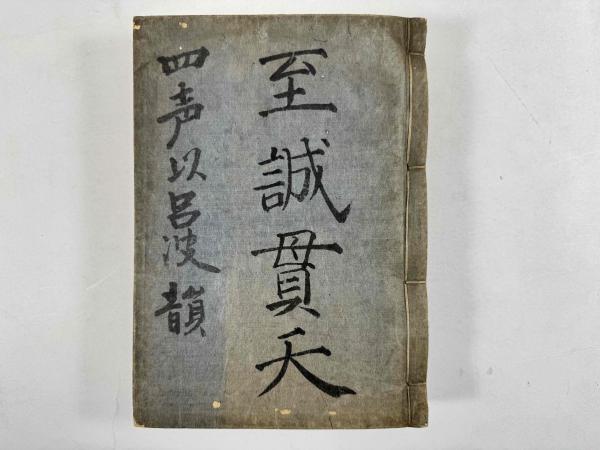 至誠貫天
四声以呂波韻